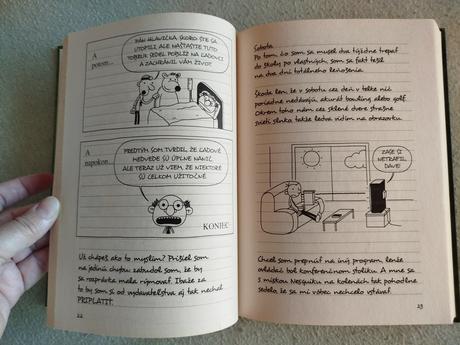 A
potom...
PÁN HLAVIČKA, SKORO STE SA
UTOPILI, ALE NAŠŤASTIE TUTO
TOBEUK SEDEL POBLÍŽ NA ĽADOVCI
A ZACHRÁNIL VÁM ŽIVOT.
A
napokon...
PREDTÝM SOM TVRDIL, ŽE ĽADOVÉ
MEDVEDE SÚ ÚPLNE NANIČ,
ALE TERAZ UŽ VIEM, ŽE NIEKTORÉ
SÚ CELKOM UŽITOČNÉ.
KONIEC
Už chápeš, ako to myslím? Prišiel som
na jedinú chybu: zabudol som, že by
sa rozprávka mala rýmovať. Ibaže za
to by som si od vydavateľstva aj tak nechal
PRIPLATIŤ.
22
Sobota
Po tom, čo som sa musel dva týždne trepať
do školy po vlastných, som sa fakt tešil
na dva dni totálneho leňošenia.
Škoda len, že v sobotu cez deň v telke nič
poriadne nedávajú, akurát bowling alebo golf.
Okrem toho nám cez sklené dvere strašne
svieti slnko, takže ledva vidím na obrazovku.
ZASE SI
NETRAFIL,
DAVE!
Chcel som prepnúť na iný program, lenže
ovládač bol konferenčnom stolíku. A mne sa
s miskou Nesquiku na kolenách tak pohodlne
sedelo, že sa mi vôbec nechcelo vstávať.
23